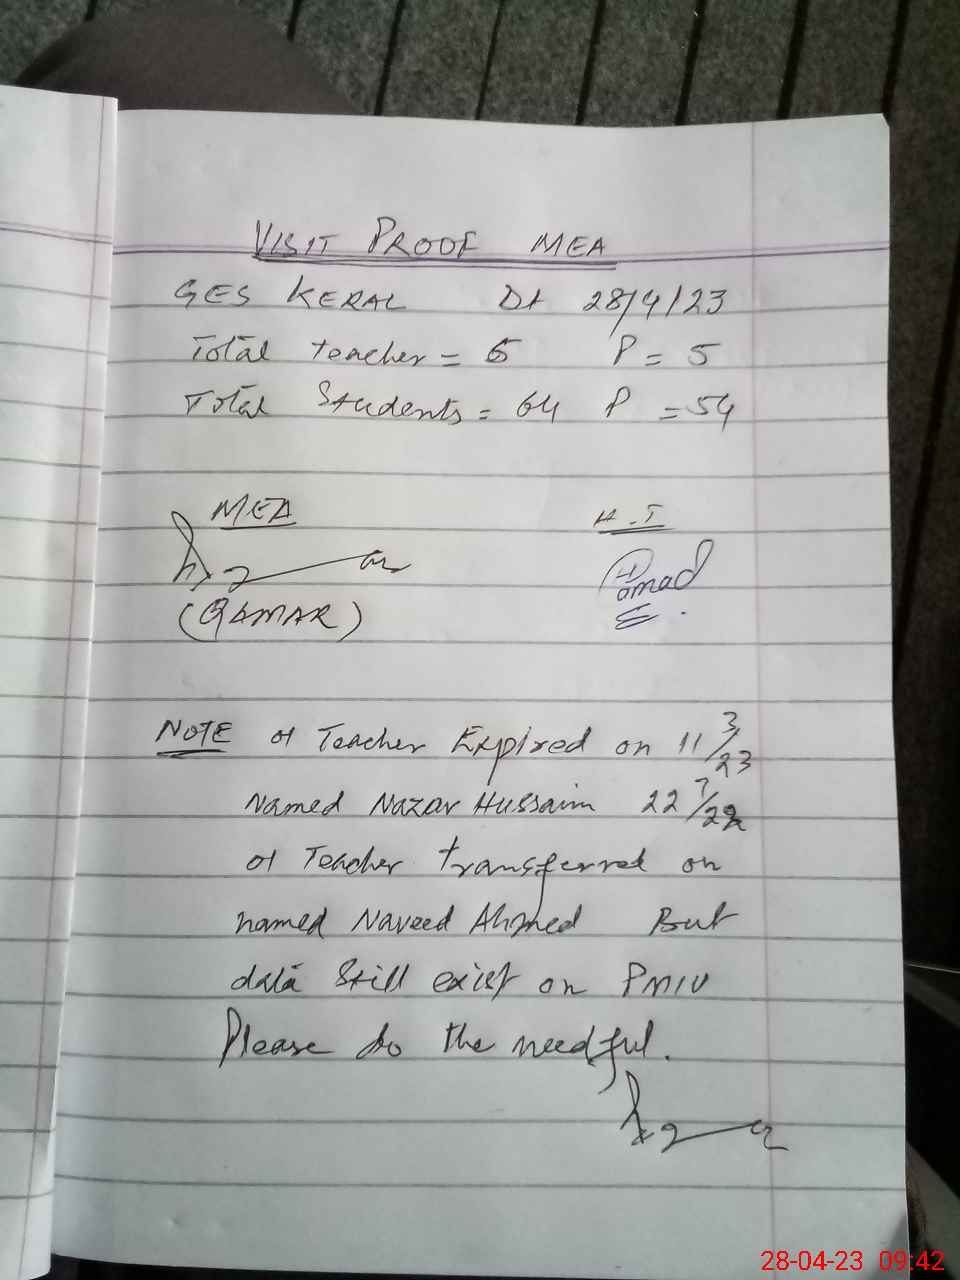 VISIT PROOF MEA
GES KERAL Dt 28/4/23
Total teacher = 5 P = 5
Total Students = 64 P = 54
MEA H.T
(QAMAR) Hamad
NOTE 01 Teacher Expired on 11/3/23
Named Nazar Hussain 22/7/22
01 Teacher transferred on
named Naveed Ahmed But
data still exist on PMIU
Please do the needful.
28-04-23 09:42